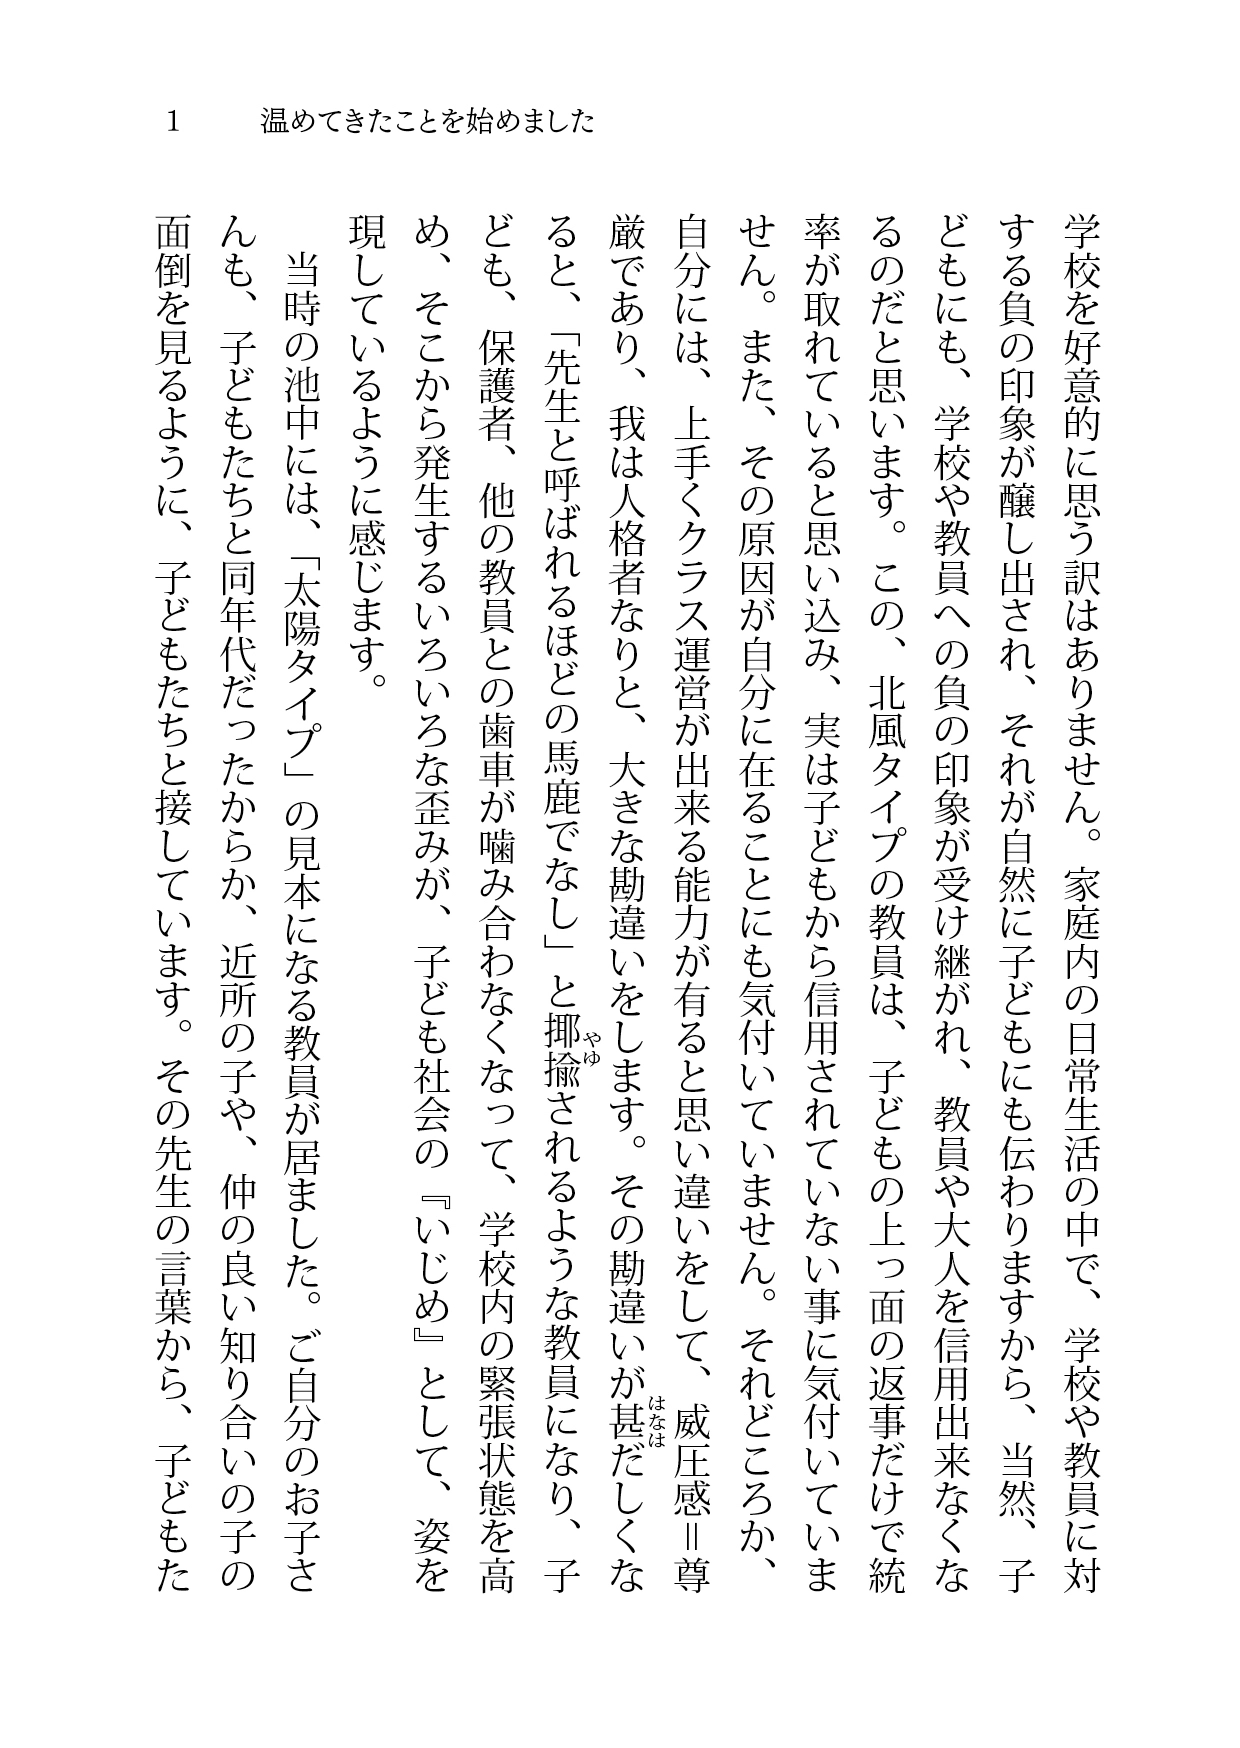 1 温めてきたことを始めました
学校を好意的に思う訳はありません。家庭内の日常生活の中で、学校や教員に対
する負の印象が醸し出され、それが自然に子どもにも伝わりますから、当然、子
どもにも、学校や教員への負の印象が受け継がれ、教員や大人を信用出来なくな
るのだと思います。この、北風タイプの教員は、子どもの上っ面の返事だけで統
率が取れていると思い込み、実は子どもから信用されていない事に気付いていま
せん。また、その原因が自分に在ることにも気付いていません。それどころか、
自分には、上手くクラス運営が出来る能力が有ると思い違いをして、威圧感＝尊
厳であり、我は人格者なりと、大きな勘違いをします。その勘違いが甚だしくな
はなは
ると、「先生と呼ばれるほどの馬鹿でなし」と揶揄されるような教員になり、子
やゆ
ども、保護者、他の教員との歯車が噛み合わなくなって、学校内の緊張状態を高
め、そこから発生するいろいろな歪みが、子ども社会の『いじめ』として、姿を
現しているように感じます。
当時の池中には、「太陽タイプ」の見本になる教員が居ました。ご自分のお子さ
んも、子どもたちと同年代だったからか、近所の子や、仲の良い知り合いの子の
面倒を見るように、子どもたちと接しています。その先生の言葉から、子どもた